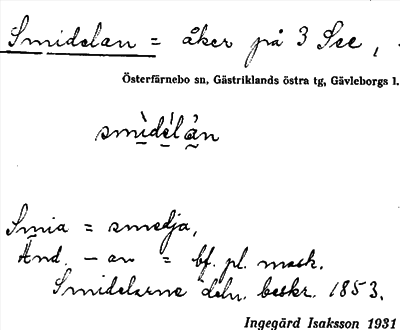 Smidelan = åker på 3 See,
Österfärnebo sn, Gästriklands östra tg, Gävleborgs l.
smìdélàn
Smia = smedja,
Änd. - an = bf. pl. mask.
Smidelarne beskr. 1853.
Ingegärd Isaksson 1931